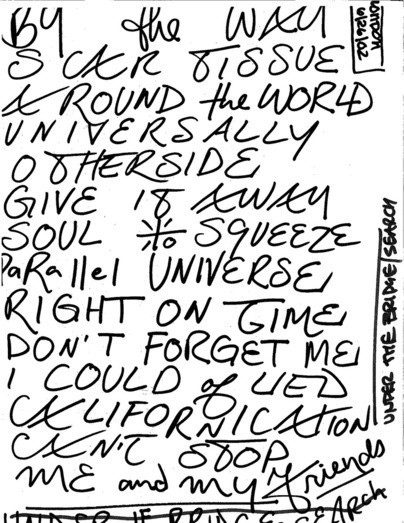 BY the WAY
SCAR TISSUE
AROUND the WORLD
UNIVERSALLY
OTHERSIDE
GIVE IT AWAY
SOUL TO SQUEEZE
PaRallel UNIVERSE
RIGHT ON TIME
DON'T FORGET ME
I COULD of LIED
CALIFORNICATION
CAN'T STOP
ME and MY friends
LONDON
6/26/02
UNDER THE BRIDGE/SEARCH